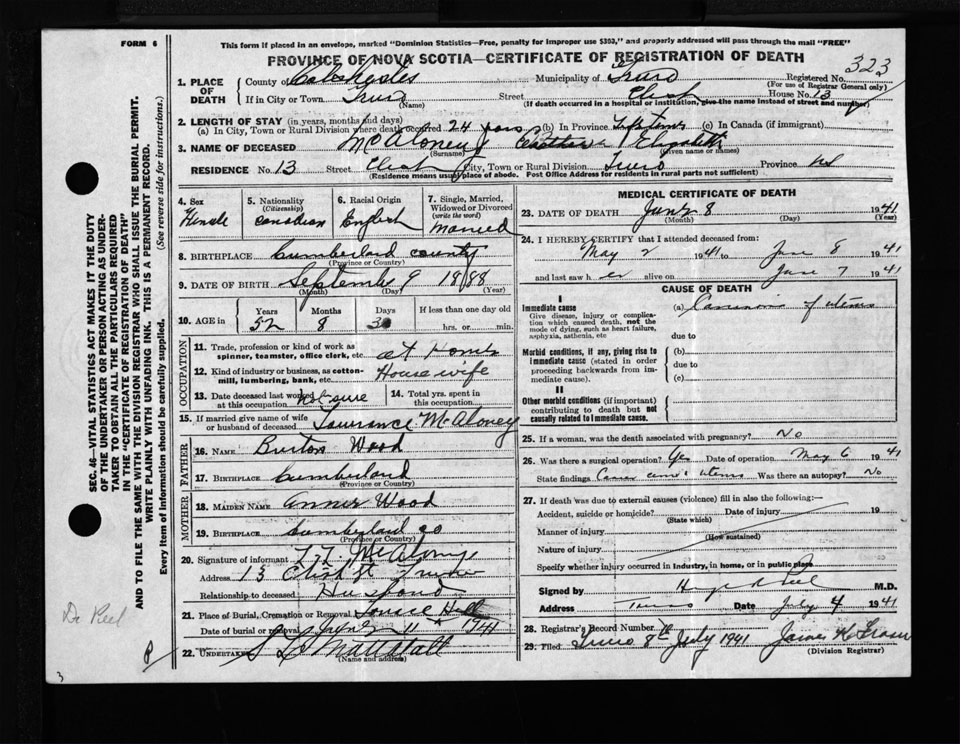 FORM 6
This form if placed in an envelope, marked "Dominion Statistics—Free, penalty for improper use $303," and properly addressed will pass through the mail "FREE"
PROVINCE OF NOVA SCOTIA—CERTIFICATE OF REGISTRATION OF DEATH
323
1. PLACE OF DEATH County of Colchester Municipality of Truro Registered No.
(For use of Registrar General only)
If in City or Town Truro (Name) Street House No. 13
(If death occurred in a hospital or institution, give the name instead of street and number)
2. LENGTH OF STAY (in years, months and days)
(a) In City, Town or Rural Division where death occurred 24 years (b) In Province Lifetime (c) In Canada (if immigrant)
3. NAME OF DECEASED McAloney (Surname) Elizabeth (Given name or names)
RESIDENCE No. 13 Street City, Town or Rural Division Truro Province NS
(Residence means usual place of abode. Post Office Address for residents in rural parts not sufficient)
4. Sex Female
5. Nationality (Citizenship) Canadian
6. Racial Origin English
7. Single, Married, Widowed or Divorced (write the word) Married
8. BIRTHPLACE Cumberland County
(Province or Country)
9. DATE OF BIRTH September 9 1888
(Month) (Day) (Year)
10. AGE in Years Months Days If less than one day old
52 8 30 hrs. or min.
OCCUPATION
11. Trade, profession or kind of work as spinner, teamster, office clerk, etc. at Home
12. Kind of industry or business, as cotton-mill, lumbering, bank, etc. House wife
13. Date deceased last worked at this occupation not sure
14. Total yrs. spent in this occupation
15. If married give name of wife or husband of deceased Laurance McAloney
FATHER
16. NAME Burton Wood
17. BIRTHPLACE Cumberland
(Province or Country)
MOTHER
18. MAIDEN NAME Wood
19. BIRTHPLACE Cumberland Co
(Province or Country)
20. Signature of informant McAloney
Address 13 St Truro
Relationship to deceased Husband
21. Place of Burial, Cremation or Removal Hill
Date of burial or removal June 11 1941
22. UNDERTAKER
(Name and address)
MEDICAL CERTIFICATE OF DEATH
23. DATE OF DEATH June 8 1941
(Month) (Day) (Year)
24. I HEREBY CERTIFY that I attended deceased from:
May 2 1941 to June 8 1941
and last saw her alive on June 7 1941
CAUSE OF DEATH
I
Immediate cause
Give disease, injury or complication which caused death, not the mode of dying, such as heart failure, asphyxia, asthenia, etc
(a) Carcinoma of uterus
due to
Morbid conditions, if any, giving rise to immediate cause (stated in order proceeding backwards from immediate cause).
(b)
due to
(c)
II
Other morbid conditions (if important) contributing to death but not causally related to immediate cause.
25. If a woman, was the death associated with pregnancy? No
26. Was there a surgical operation? Yes Date of operation May 6 1941
State findings Cancer uterus Was there an autopsy? No
27. If death was due to external causes (violence) fill in also the following:—
Accident, suicide or homicide? Date of injury 19
(State which)
Manner of injury
(How sustained)
Nature of injury
Specify whether injury occurred in industry, in home, or in public place
Signed by M.D.
Address Truro Date July 4 1941
28. Registrar's Record Number
29. Filed Truro 8th July 1941 James
(Division Registrar)
SEC. 46—VITAL STATISTICS ACT MAKES IT THE DUTY
OF THE UNDERTAKER OR PERSON ACTING AS UNDERTAKER TO OBTAIN ALL THE PARTICULARS REQUIRED
IN THE "CERTIFICATE OF REGISTRATION OF DEATH"
AND TO FILE THE SAME WITH THE DIVISION REGISTRAR WHO SHALL ISSUE THE BURIAL PERMIT.
WRITE PLAINLY WITH UNFADING INK. THIS IS A PERMANENT RECORD.
Every item of information should be carefully supplied. (See reverse side for instructions.)
3